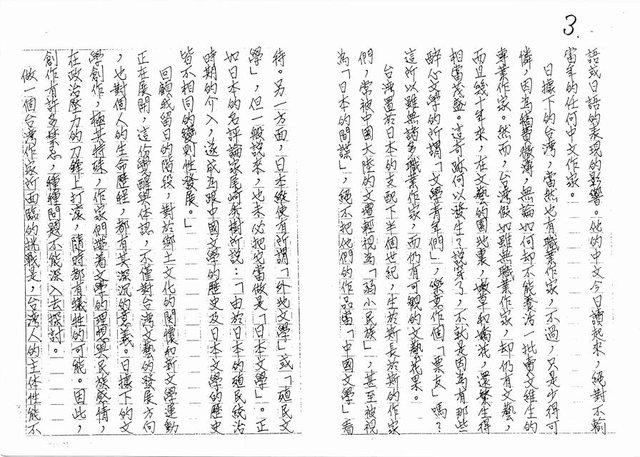 3.
語或日語的表現的影響。他的中文今日讀起來,絕對不輸
當年的任何中文作家。
日據下的台灣,當然也有職業作家,不過,只是少得可
憐,因為稿費微薄,無論如何卻不能養活一批賣文維生的
專業作家。然而,台灣做如雖無職業作家,却仍有文藝,
而且幾十年來,在文藝的園地裏,嫩草和嬌花,還繁生得
相當茂盛。這奇跡何以發生?說穿了,不就是因為有那些
醉心文學的所謂「文學青年們」,樂業作個「票友」嗎?
這所以雖無諸多職業作家,而仍有可觀的文藝花果。
台灣置於日本的支配下半個世紀,生於斯長於斯的作家
們,常被中國大陸的文壇輕視為「弱小民族」,甚至被視
為「日本的間諜」,絕不把他們的作品當「中國文學」看
待。另一方面,日本縱使有所謂「外地文學」或「殖民文
學」,但一般說來,也未必把它當做是「日本文學」。正
如日本的名評論家尾崎秀樹所說:「由於日本的殖民統治
時期的介入,造成為跟中國文學的歷史及日本文學的歷史
皆不相同的變則性發展。」
回顧我留日的階段,對於鄉土文化的關懷和新文學運動
正在展開,這份覺醒與体認,不僅對台灣文藝的發展方向
,也對個人的生命歷經,都有其深沉的意義。日據下的文
學創作,極其特殊,作家們帶着文學的理想與民族感情,
在政治壓力的刀鋒上打滾,隨時都有犧牲的可能。因此,
創作有許多禁忌,種種問題不能深入去探討。
做一個台灣作家所面臨的挑戰是,台灣人的主体性能不